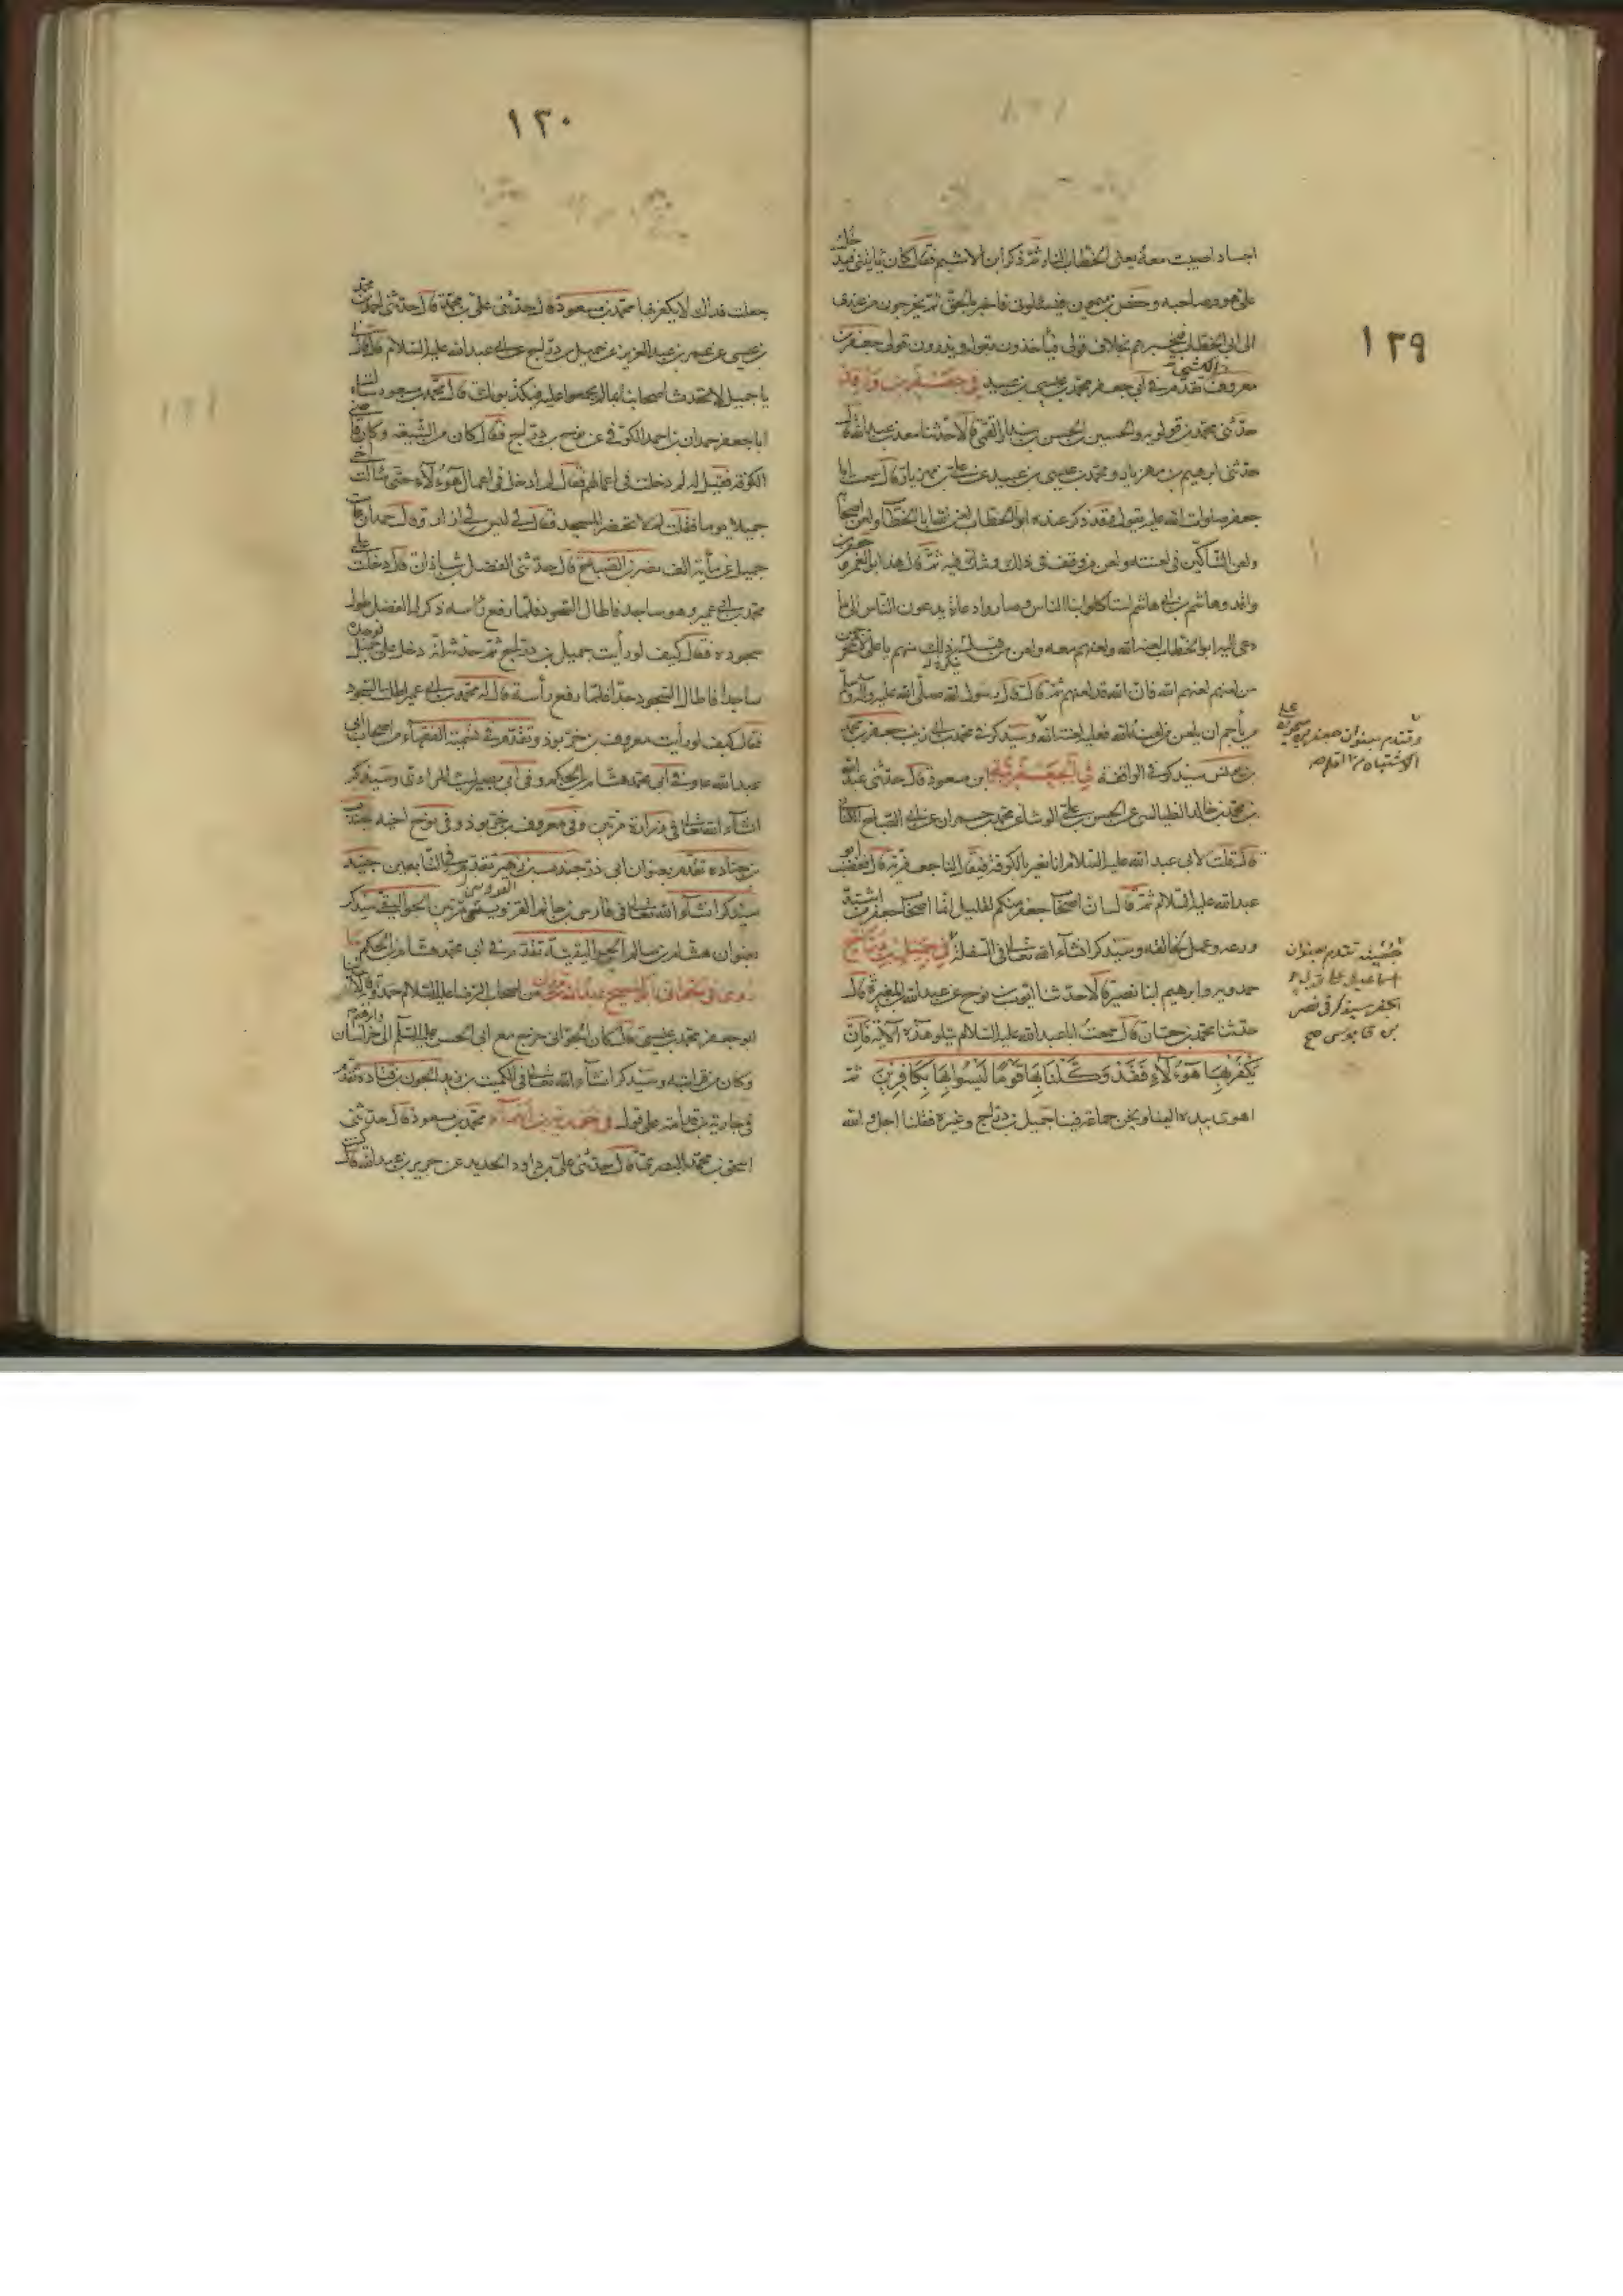 ١٢٩
اجساد اصيبت معه يعنى الخطاب النار ثم ذكر ابن الاشيم فقال كان يأتينى فيدخل
على هو وصاحبه وحفص بن ميمون فيسئلونى فاخبرهم بالحق ثم يخرجون من عندى
الى ابى الخطاب فيخبرهم بخلاف قولى فيأخذون بقوله ويذرون قولى جعفر بن
معروف تقدم فى ابى جعفر محمد بن عيسى بن عبيد فى جعفر بن واقد
حدثنى محمد بن قولويه والحسين بن الحسن بن بندار القمى قالا حدثنا سعد بن عبد الله قال
حدثنى ابرهيم بن مهزيار ومحمد بن عيسى بن عبيد عن على بن مهزيار قال سمعت ابا
جعفر صلوات الله عليه يقول وقد ذكر عنده ابو الخطاب لعن الله ابا الخطاب ولعن اصحابه
ولعن الشاكين فى لعنته ولعن من وقف فى ذلك وشك فيه ثم قال هذا ابو الغمر وجعفر بن
واقد وهاشم بن ابى هاشم استاكلوا بنا الناس وصاروا دعاة يدعون الناس الى ما
دعى اليه ابو الخطاب لعنه الله ولعنهم معه ولعن من قبل ذلك منهم يا على لا تتحرجن
من لعنهم لعنهم الله فان الله قد لعنهم ثم قال قال رسول الله صلى الله عليه وآله وسلم
من يأجم ان يلعن من لعنه الله فعليه لعنة الله وسيذكر فى محمد بن ابى زينب جعفر بن محمد
بن يونس سيذكر فى الواقفة فى الجعفرية ابن مسعود قال حدثنى عبد الله
بن محمد بن خالد الطيالسى عن الحسن بن على الوشاء عن محمد بن حمران عن ابى الصباح الكنانى
قال قلت لابى عبد الله عليه السلام انا نعير بالكوفة فيقال لنا جعفرية قال فغضب ابو
عبد الله عليه السلام ثم قال ان اصحاب جعفر منكم لقليل انما اصحاب جعفر من اشتد
ورعه وعمل لخالقه وسيذكر انشاء الله تعالى فى السفلة فى جميل بن دراج
حمدويه وابرهيم ابنا نصير قالا حدثنا ايوب بن نوح عن عبد الله بن المغيرة قال
حدثنا محمد بن حسان قال سمعت ابا عبد الله عليه السلام يتلو هذه الآية فَاِنْ
يَكْفُرْ بِهَا هَؤُلَاءِ فَقَدْ وَكَّلْنَا بِهَا قَوْمًا لَيْسُوا بِهَا بِكَافِرِينَ ثم
اهوى بيده الينا ونحن جماعة فينا جميل بن دراج وغيره فقلنا اجل والله
جنينه تقدم بعنوان
بن قابوس صح
١٣٠
جعلت فداك لا يكفر بها محمد بن مسعود قال حدثنى على بن محمد قال حدثنى احمد بن محمد
بن عيسى عن عمر بن عبد العزيز عن جميل بن دراج عن ابى عبد الله عليه السلام قال قال لى
يا جميل لا تحدث اصحابنا بما لم يجمعوا عليه فيكذبوك قال محمد بن مسعود سالت
ابا جعفر حمدان بن احمد الكوفى عن نوح بن دراج فقال كان من الشيعة وكان قاضى
الكوفة فقيل له لم دخلت فى اعمالهم فقال لم ادخل فى اعمال هؤلاء حتى سألت اخى
جميلا يوما فقلت له لم لا تحضر المسجد فقال لى ليس لى ازار وقال حمدان مات
جميل عن مأية الف نصر بن الصباح قال حدثنى الفضل بن شاذان قال دخلت على
محمد بن ابى عمير وهو ساجد فاطال السجود فلما رفع رأسه ذكر له الفضل طول
سجوده فقال كيف لو رأيت جميل بن دراج ثم حدثه انه دخل على جميل فوجده
ساجدا فاطال السجود جدا فلما رفع رأسه قال له محمد بن ابى عمير اطلت السجود
فقال كيف لو رأيت معروف بن خربوذ وتقدم فى تسمية الفقهاء من اصحاب ابى
عبد الله ع وفى ابى محمد هشام بن الحكم وفى ابى بصير ليث المرادى وسيذكر
انشاء الله تعالى فى زرارة مرتين وفى معروف بن خربوذ وفى نوح اخيه جندب
بن جناده تقدم بعنوان ابى ذر جندب بن زهير تقدم فى التابعين جنيد
سيذكر انشاء الله تعالى فى فارس بن حاتم القزوينى مرتين الجواليقى سيذكر
بعنوان هشام بن سالم الجواليقية تقدم فى ابى محمد هشام بن الحكم ما
ابو جعفر محمد بن عيسى قال كان الجوانى خرج مع ابى الحسن عليه السلام الى خراسان
وكان من قرابته وسيذكر انشاء الله تعالى فى الكميت بن زيد الجون بن قتاده تقدم
فى جارية بن قدامة على قول محمد بن مسعود قال حدثنى
اسحق بن محمد البصرى قال حدثنى على بن داود الحديد عن حريز بن عبد الله قال